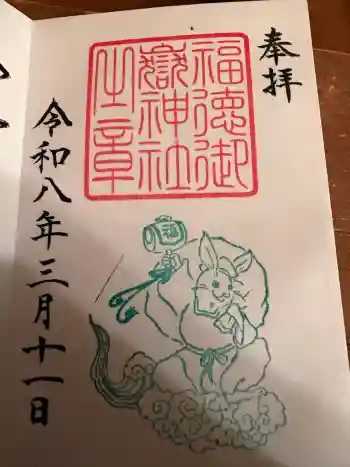 奉拝
福徳御
嶽神社
之章
令和八年三月十一日